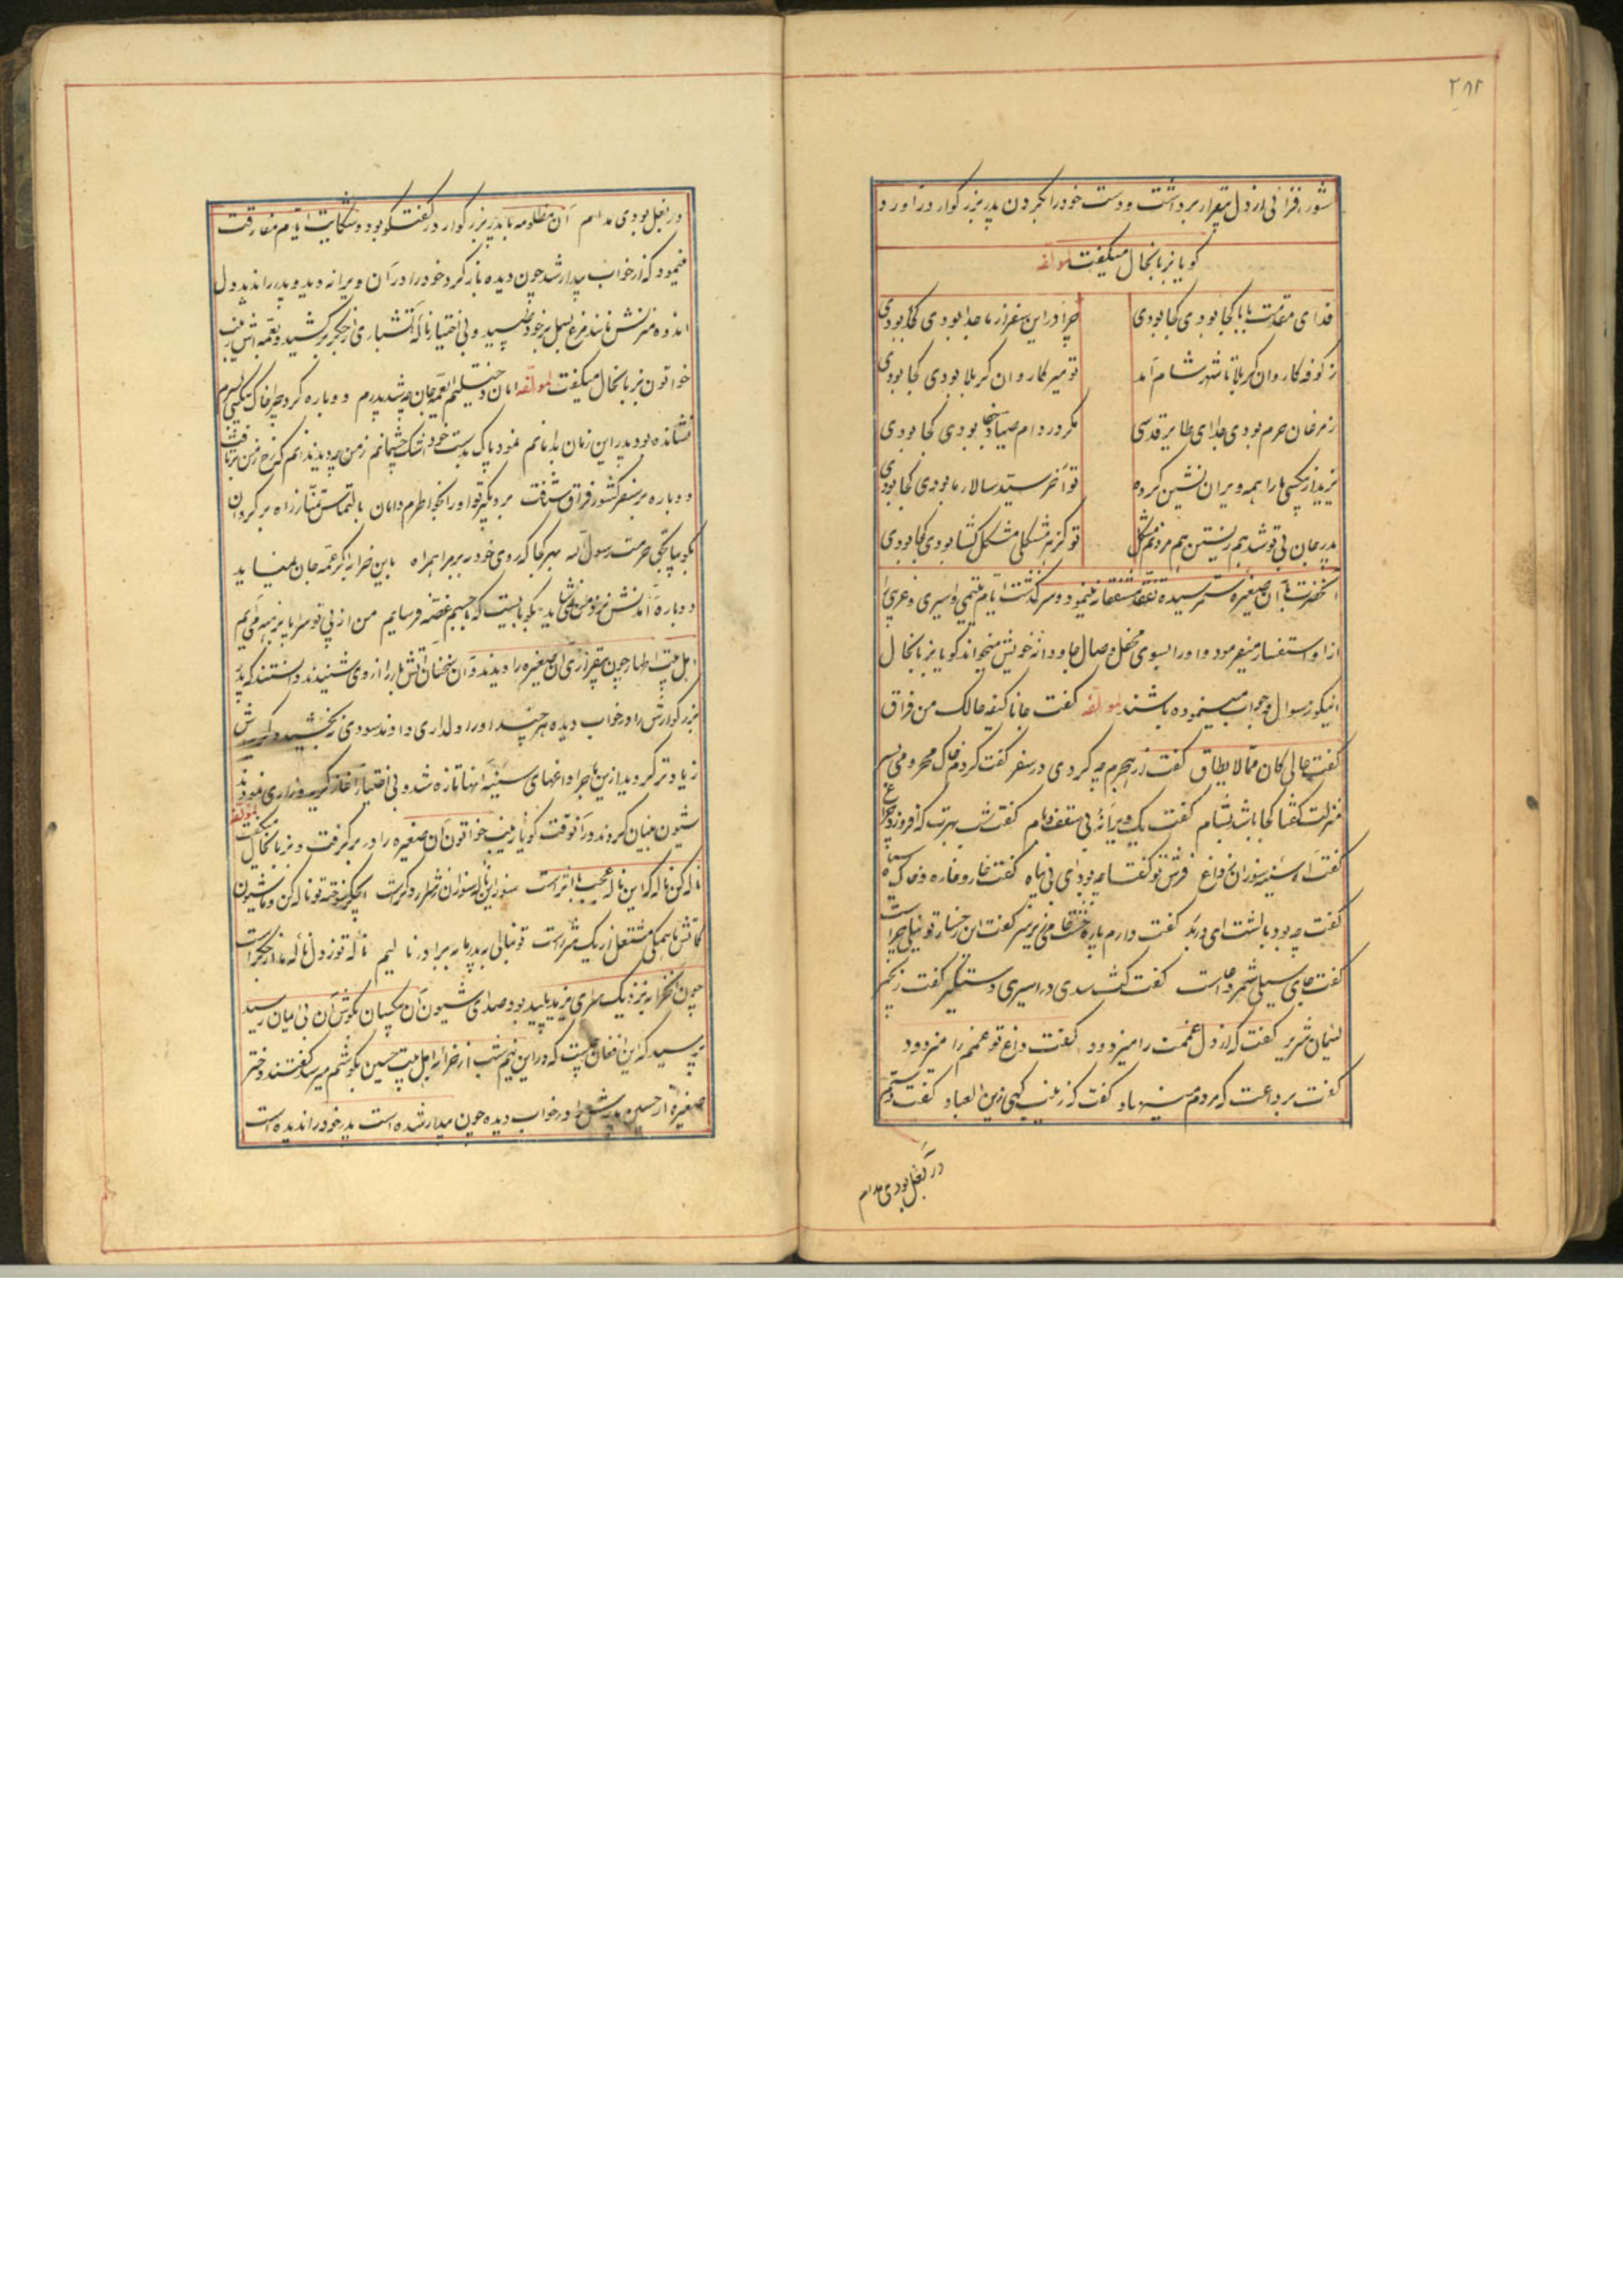 ۲۸۲
شور افزائی از دل بیقرار برداشت و دست خود را بگردن پدر بزرگوار در آورد
گویا بزبانحال میگفت لمولفه
فدای مقدمت بابا کجا بودی کجا بودی چرا در این سفر از ما جدا بودی کجا بودی
ز کوفه کاروان کربلا تا شهر شام آمد تو میر کاروان کربلا بودی کجا بودی
ز مرغان حرم بودی جدا ای طایر قدسی مگر در دام صیاد جفا بودی کجا بودی
یزید از بیکسی ما را همه ویران نشین کرده تو آخر سید سالار ما بودی کجا بودی
پدر جان بی تو شد هم زیستن هم مردنم مشکل تو کز هر مشکلی مشکل گشا بودی کجا بودی
آنحضرت با آن صغیره ستمرسیده تفقد مشفقانه میفرمود و سرگذشت ایام یتیمی و اسیری و غریبی
از او استفسار میفرمود و او را بسوی محفل وصال جاودانه خویش میخواند گویا بزبانحال
اینگونه سوال و جواب مینموده باشند لمولفه گفت جانا کیف حالک من فراق
گفت حالی کان مما لا یطاق گفت از هجرم چه کردی در سفر گفت کردم خاک محرومی بسر
منزلت گفتا کجا باشد بشام گفت یک ویرانه بی سقف و بام گفت شب بهرت که افروزد چراغ
گفت آه سینه سوزان ز داغ فرش تو گفتا چه بود ای بی پناه گفت خار و خاره و خاک سیاه
گفت چه بود بالشت ای دربدر گفت دارم پاره خشتی زیر سر گفت این رخساره تو نیلی چراست
گفت جای سیلی شمر دغاست گفت گشتی در اسیری دستگیر گفت زنجیر
لئیمان شریر گفت که از دل غمت را میزدود گفت داغ تو غمم را میزدود
گفت بر داغت که مرهم مینهاد گفت گه زینب گهی زین العباد گفت دستم
در بغل بودی مدام
در بغل بودی مدام آن مظلومه با پدر بزرگوار در گفتگو بود و شکایت ایام مفارقت
مینمود که از خواب بیدار شد چون دیده باز کرد خود را در آن ویرانه دید و پدر را ندید دل
اندوه منزلش مانند مرغ بسمل بر خود طپید و بی اختیار ناله آتشباری از جگر بر کشید و بعمه اش زینب
خواتون بزبانحال میگفت لمولفه امان دخیلتم ای عمه جان چه شد پدرم دوباره کرد چرا خاک بیکسی بسرم
نشانده بود پدر این زمان بدامانم نمود پاک بدست خود اشک چشمانم ز من چه دید ندانم که رخ ز من برتافت
دوباره بر سفر کشور فراق شتافت
بگو بیا بحق حرمت رسول اله بهر کجا که روی خود ببر مرا همراه باین خرابه اگر عمه جان نمیاید
دوباره آمدنش نزد من نمی شاید بگو بایست که با جسم غصه فرسایم من از پی تو سراپا برهنه می آیم
اهل بیت اطهار چون بیقراری آن صغیره را دیدند و آن سخنان آتش بار را از وی شنیدند دانستند که پدر
بزرگوارش را در خواب دیده هر چند او را دلداری دادند سودی نبخشید و گریه اش
زیادتر گردید از این ماجرا داغهای سینه آنها تازه شد و بی اختیار آغاز گریه و زاری نمودند
شیون بنیان کردند در آنوقت گویا زینب خواتون آن صغیره را در بر گرفت و بزبانحال میگفت لمولفه
ناله کن ناله که این ناله عجب با اثر است سوز این ناله سوزان شرر دگر است ای جگر سوخته تو ناله کن و ما شیون
کاتش ما همگی مشتعل از یک شرر است تو بنالی به پدر ما به برادر نالیم ناله تو ز دل ناله ما از جگر است
چون آن خرابه نزدیک سرای یزید پلید بود صدای شیون آن بیکسان بگوش آن بی ایمان رسید
پرسید که این افغان چیست که در این نیم شب از خرابه اهل بیت حسین بگوشم میرسد گفتند دختر
صغیره از حسین پدرش را در خواب دیده چون بیدار شده است پدر خود را ندیده است